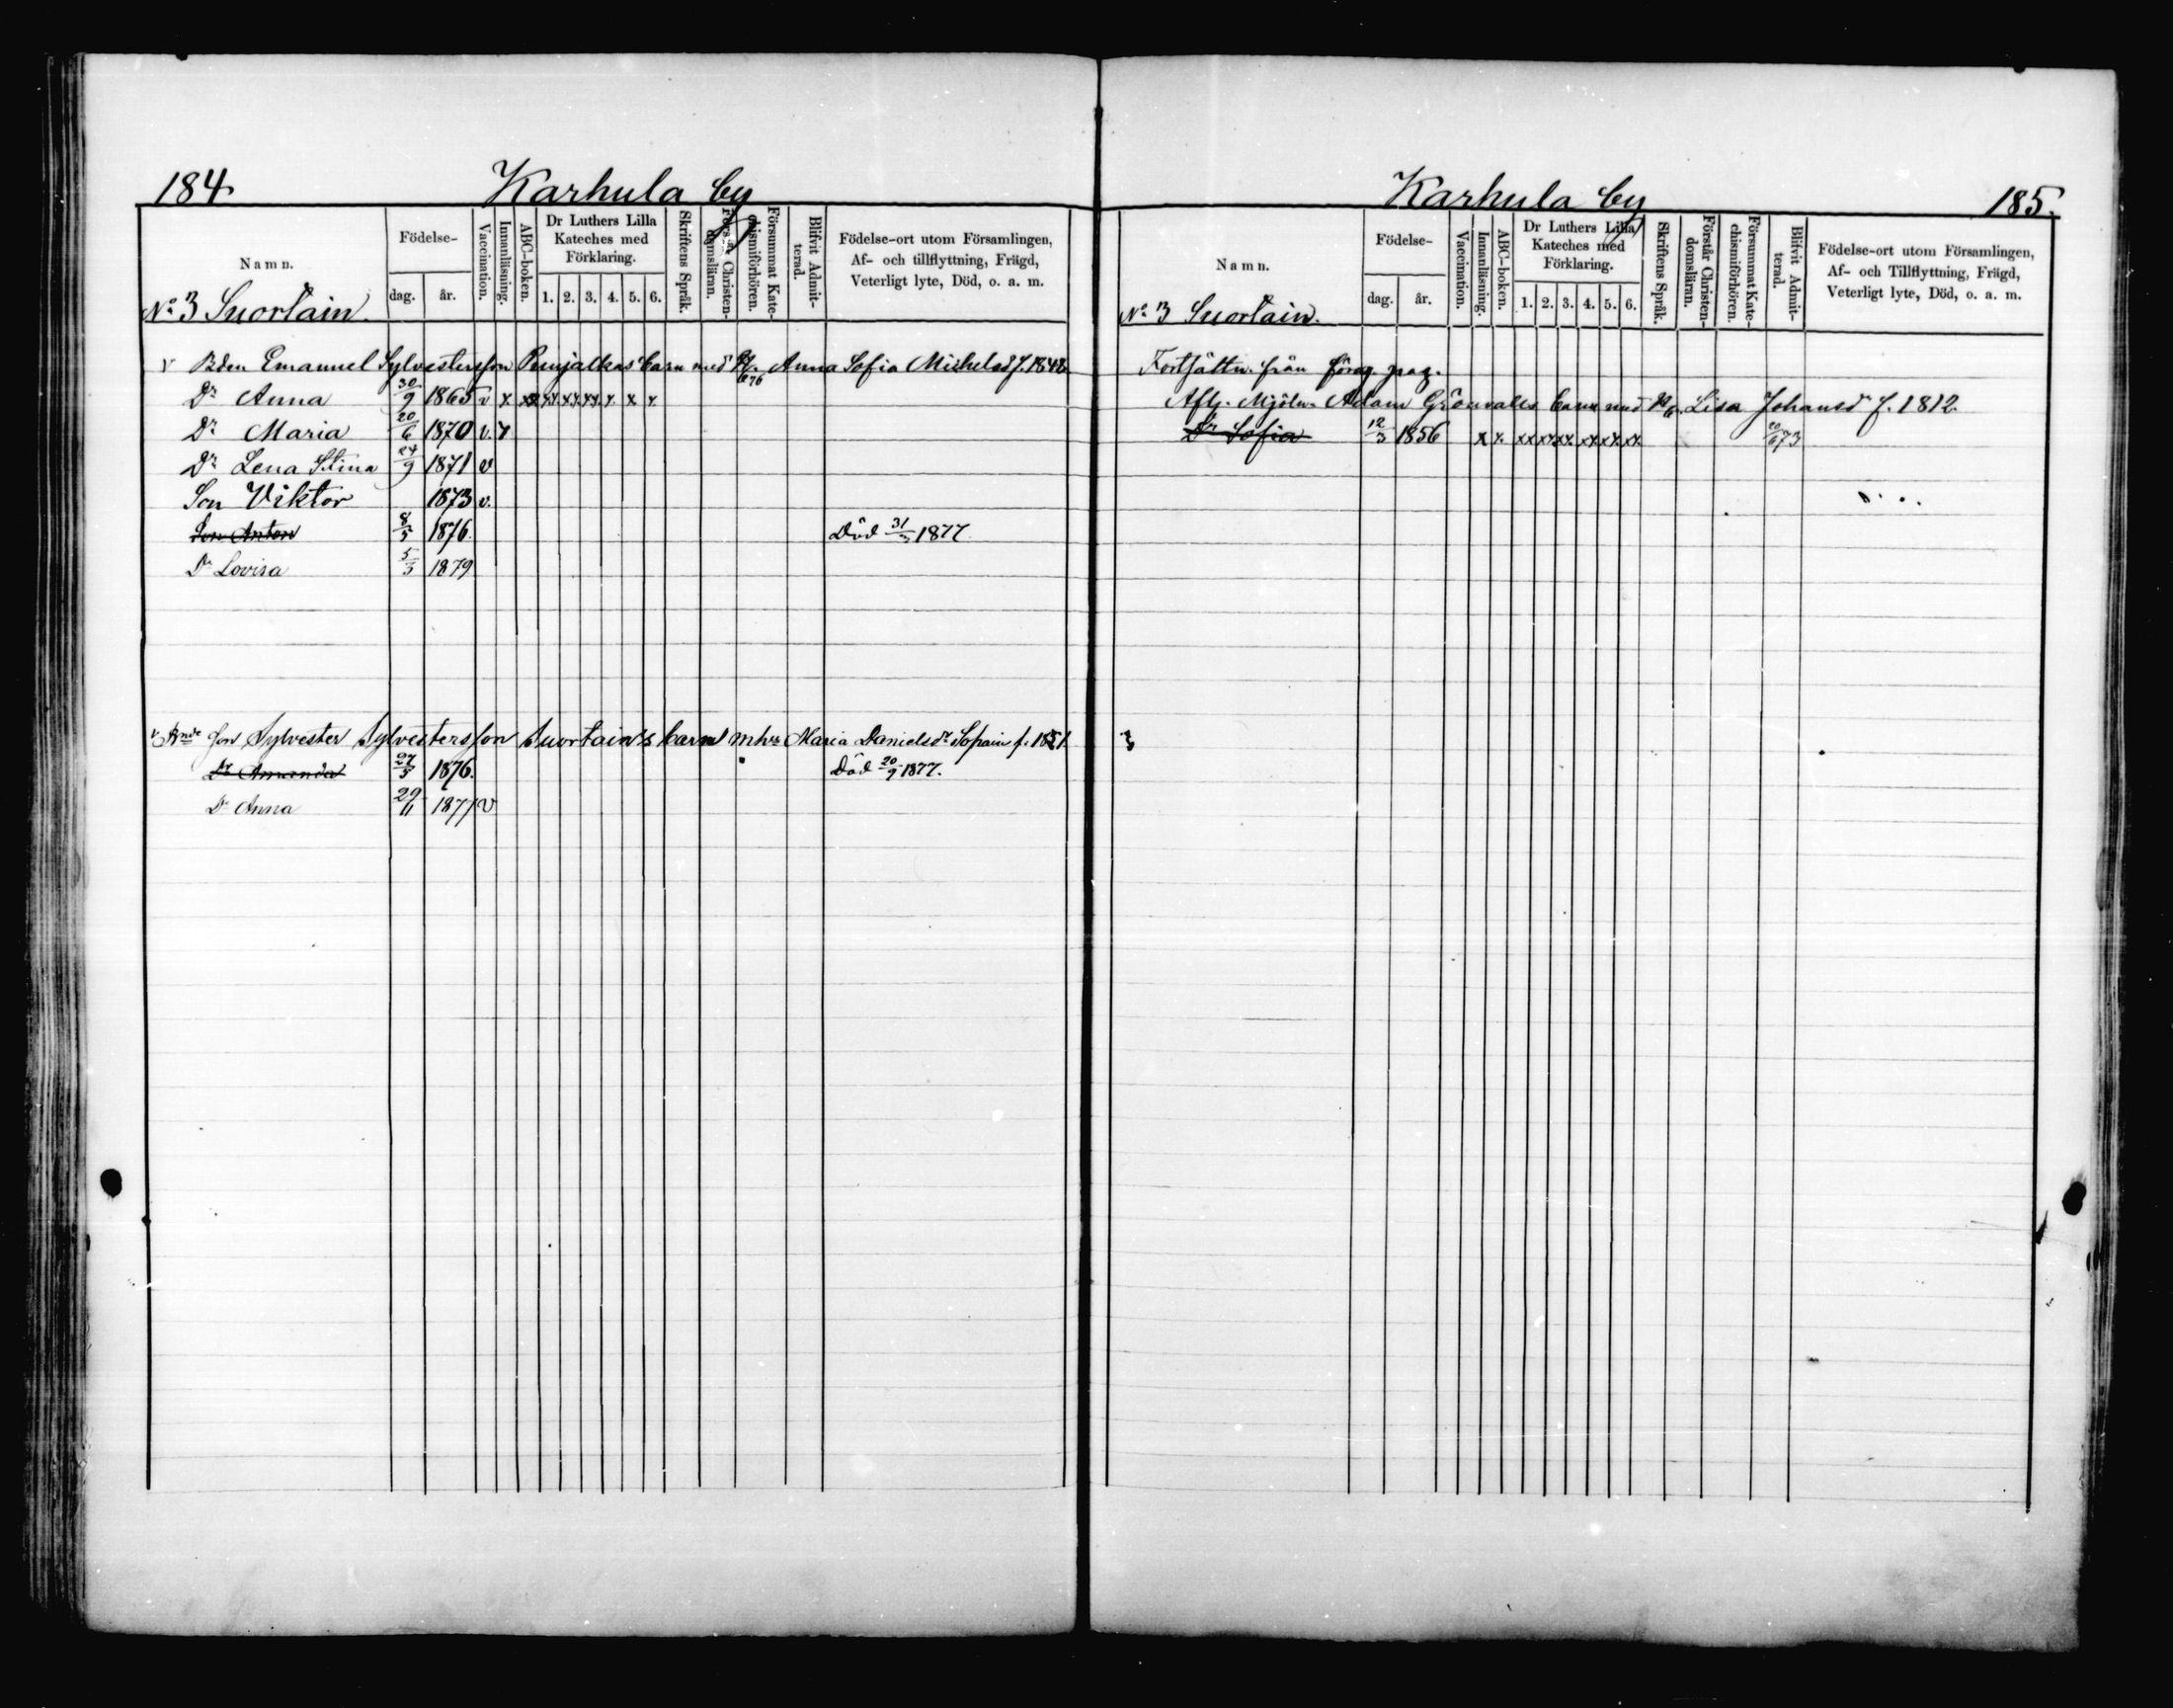 184. Karhula by
Namn. Födelse- dag. år. Vaccination. Innanläsning. ABC-boken. Dr Luthers Lilla Kateches med Förklaring. 1. 2. 3. 4. 5. 6. Skriftens Språk. Förstår Christen-domsläran. Försummat Kate-chismiförhören. Blifvit Admit-terad. Födelse-ort utom Församlingen, Af- och tillflyttning, Frägd, Veterligt lyte, Död, o. a. m.
No 3 Suortain.
v Bden Emanuel Sylvestersson barn med Anna Sofia Michelsd f. 1848
Dr Anna 30/9 1865 v x xx xx xx xx x x x
Dr Maria 20/6 1870 v. x
Dr Lena Stina 24/9 1871 v
Son Viktor 1873 v.
Son Anton 8/5 1876. Död 31/ 1877.
Dr Lovisa 5/3 1879
v Bnde Son Sylvester Sylvestersson Suortain's barn m hu Maria Danielsdr Sopain f. 1851.
Dr Amanda 27/5 1876. Död 20/9 1877.
Dr Anna 29/11 1877 v
Karhula by 185.
Namn. Födelse- dag. år. Vaccination. Innanläsning. ABC-boken. Dr Luthers Lilla Kateches med Förklaring. 1. 2. 3. 4. 5. 6. Skriftens Språk. Förstår Christen-domsläran. Försummat Kate-chismiförhören. Blifvit Admit-terad. Födelse-ort utom Församlingen, Af- och Tillflyttning, Frägd, Veterligt lyte, Död, o. a. m.
No 3 Suortain.
Fortsättn. från föreg. pag.
Afl. Mjöln. Adam Grönvalls barn med Lisa Johansd f. 1812.
Dr Sofia 12/3 1856 x x xx xx xx xx xx xx 20/6 73